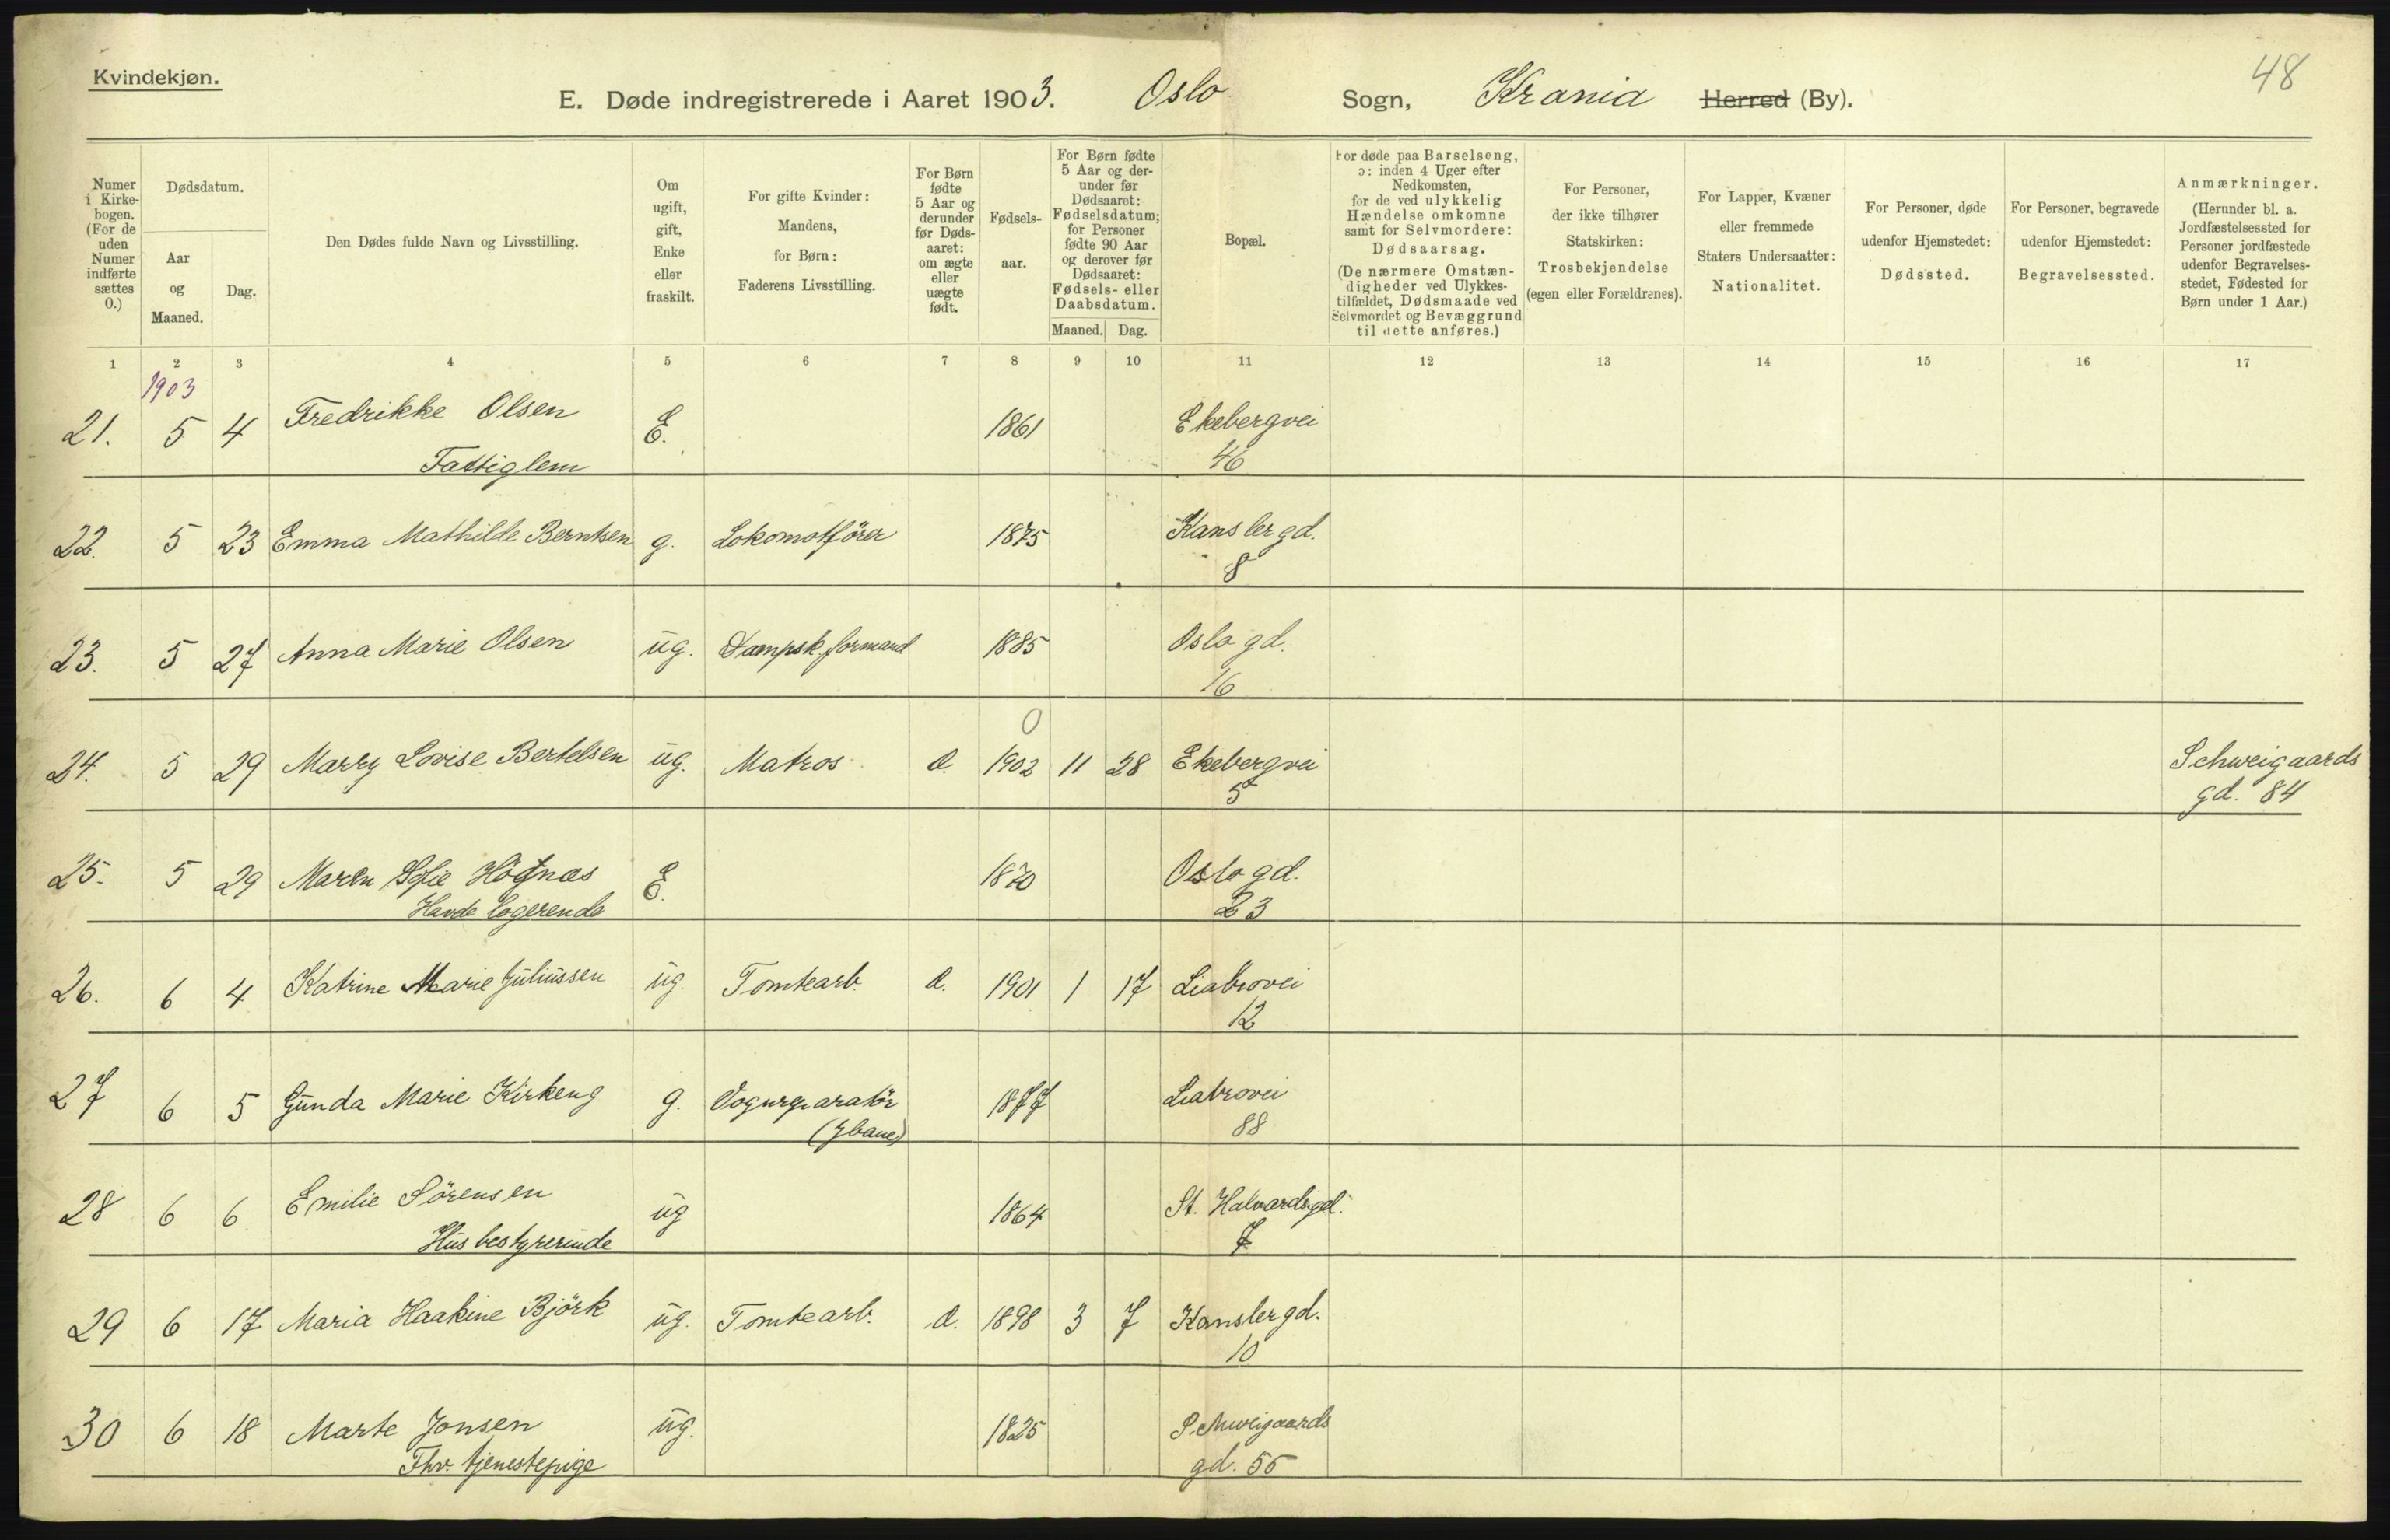 Kvindekjøn.
48
E. Døde indregistrerede i Aaret 1903. Oslo Sogn, Krania Herred (By).
Numer i Kirkebogen. (For de uden Numer indførte sættes 0.)
Dødsdatum.
Aar og Maaned.
Dag.
Den Dødes fulde Navn og Livsstilling.
Om ugift, gift, Enke eller fraskilt.
For gifte Kvinder: Mandens, for Børn: Faderens Livsstilling.
For Børn fødte 5 Aar og derunder før Dødsaaret: om ægte eller uægte født.
Fødselsaar.
For Børn fødte 5 Aar og derunder før Dødsaaret: Fødselsdatum; for Personer fødte 90 Aar og derover før Dødsaaret: Fødsels- eller Daabsdatum.
Maaned. Dag.
Bopæl.
For døde paa Barselseng, ɔ: inden 4 Uger efter Nedkomsten, for de ved ulykkelig Hændelse omkomne samt for Selvmordere: Dødsaarsag. (De nærmere Omstændigheder ved Ulykkestilfældet, Dødsmaade ved Selvmordet og Bevæggrund til dette anføres.)
For Personer, der ikke tilhører Statskirken: Trosbekjendelse (egen eller Forældrenes).
For Lapper, Kvæner eller fremmede Staters Undersaatter: Nationalitet.
For Personer, døde udenfor Hjemstedet: Dødssted.
For Personer, begravede udenfor Hjemstedet: Begravelsessted.
Anmærkninger. (Herunder bl. a. Jordfæstelsessted for Personer jordfæstede udenfor Begravelsesstedet, Fødested for Børn under 1 Aar.)
1 2 3 4 5 6 7 8 9 10 11 12 13 14 15 16 17
1903
21. 5 4 Fredrikke Olsen E. 1861 Ekebergvei
Fattiglem 46
22. 5 23 Emma Mathilde Berntsen g. Lokomotfører 1875 Kanslergd.
8
23. 5 27 Anna Marie Olsen ug. Dampsk.formand 1885 Oslogd.
16
0
24. 5 29 Marry Lovise Bertelsen ug. Matros d. 1902 11 28 Ekebergvei Schweigaards
5 gd. 84
25. 5 29 Maren Sofie E. 1870 Oslogd.
Havde logerende 23
26. 6 4 Katrine Marie Juliussen ug. Tomtearb. d. 1901 1 17 Liabrovei
12
27 6 5 Gunda Marie Kirkeng g. 1877 Liabrovei
88
28 6 6 Emilie Sörensen ug 1864 St. Halvardsgd.
Husbestyrerinde 7
29 6 17 Maria Haakine Björk ug. Tomtearb. d. 1898 3 7 Kanslergd.
10
30 6 18 Marte Jonsen ug. 1825 Schweigaards
Fhv. tjenestepige gd. 55